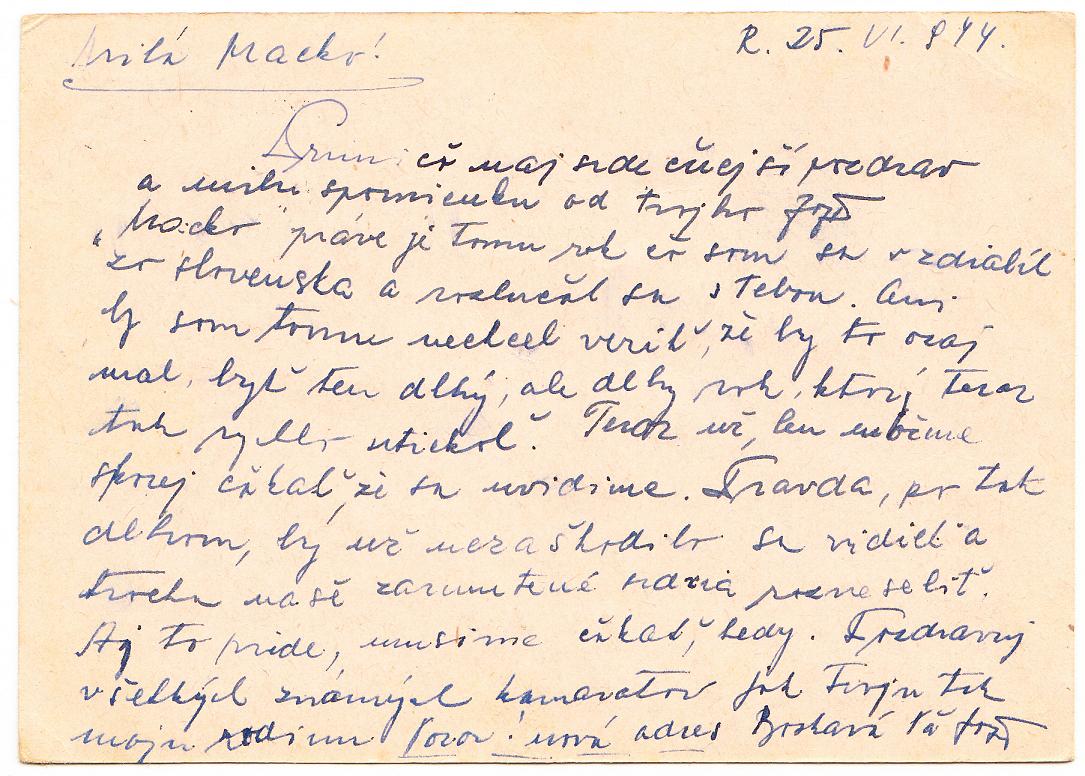 Milá Macko!
R. 25. VI. 944.
Prim čo najsrdečnejší pozdrav
a milu spomienku od tvojho Jozo
"Macko" práve je tomu rok čo som sa vzdialil
zo slovenska a rozlučil sa s Tebou. Ani
by som tomu nechcel verit, že by to ozaj
mal, byť ten dlhý, ale dlhy rok, ktorý teraz
tak rychlo utiekol. Teraz už, len možme
skorej čakať, že sa uvidime. Pravda, po tak
dlhom, by už nezaškodilo sa vidieť a
trocha naše zarmutené srdcia rozveseliť.
Aj to pride, musime čakať, tedy. Pozdravuj
všetkých známých kamaratov jak Tvoju tak
moju rodinu Pozor! nová adres Boskavá Ťa Jozo